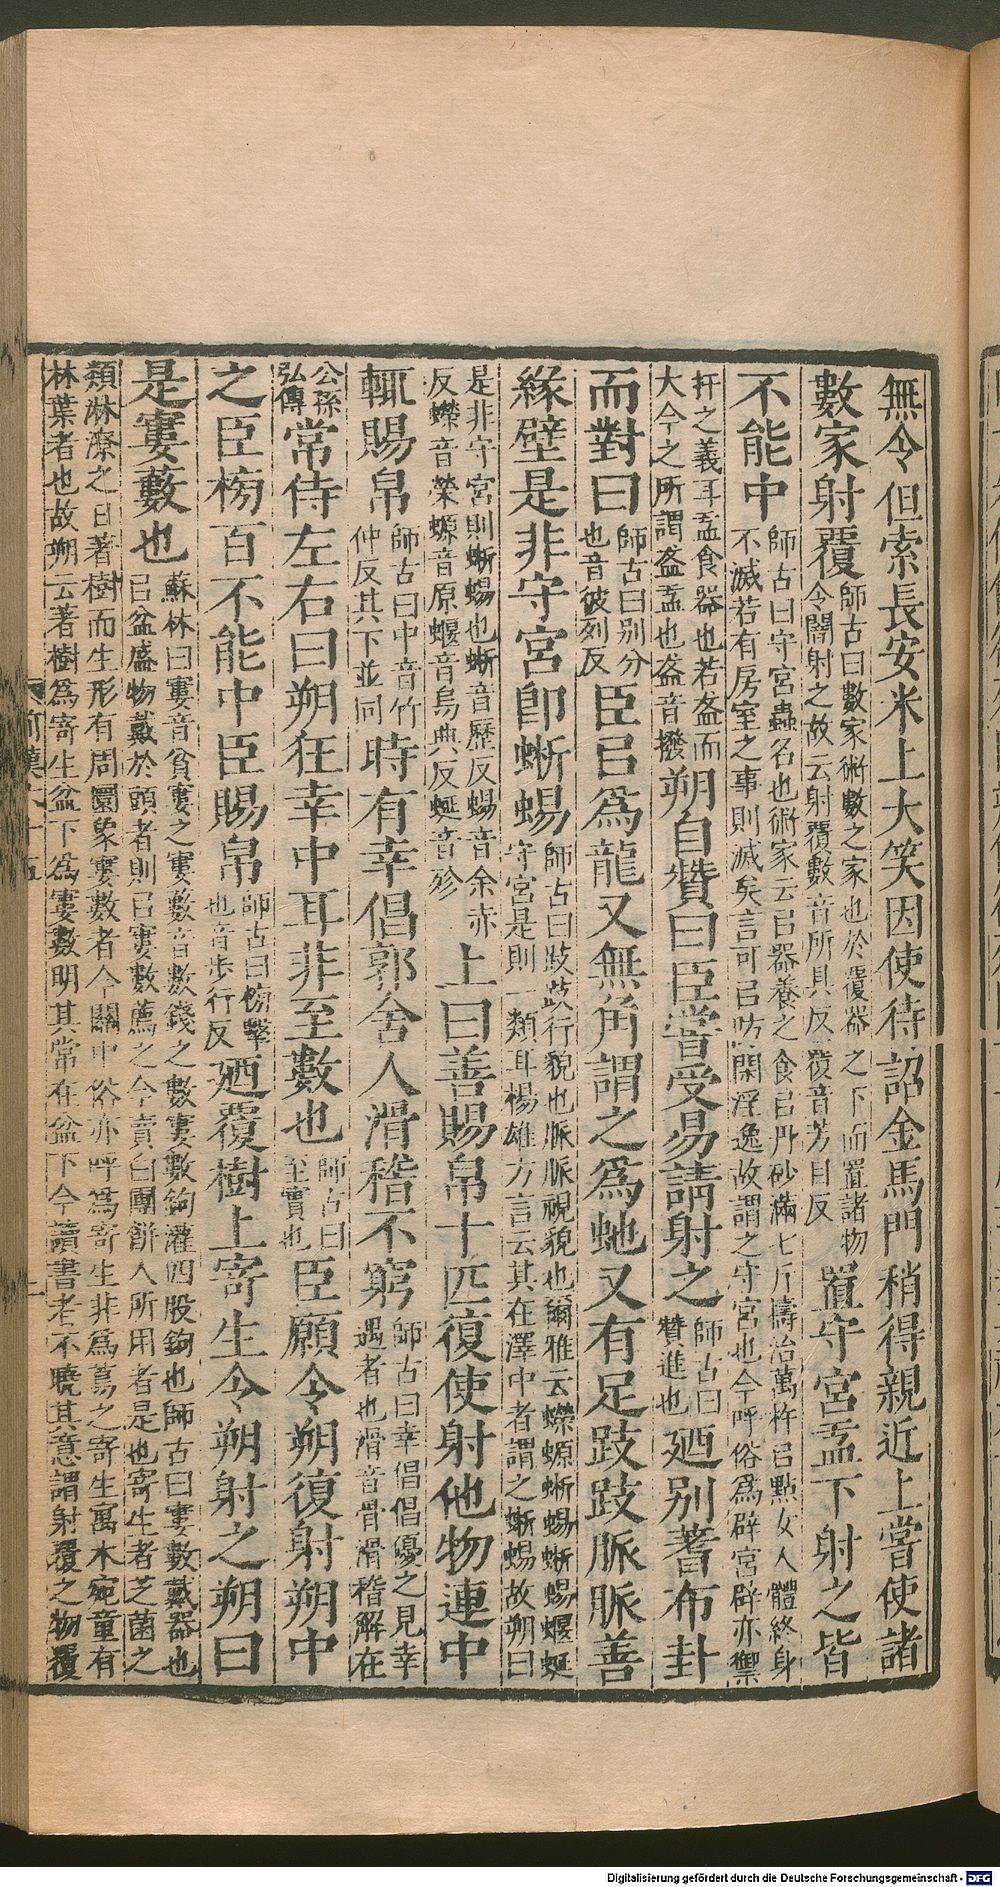 無令但索長安米上大笑因使待詔金馬門稍得親近上嘗使諸
數家射覆師古曰數家術數之家也於覆器之下而置諸物令闇射之故云射覆數音所具反覆音芳目反置守宮盂下射之皆
不能中師古曰守宮蟲名也術家云㠯器養之食㠯丹砂滿七斤擣治萬杵㠯點女人體終身不滅若有房室之事則滅矣言可㠯防閑淫逸故謂之守宮也今呼俗為辟宮辟亦禦
扞之義耳盂食器也若盋而大今之所謂盋盂也盋音撥朔自贊曰臣嘗受易請射之師古曰贊進也廼別蓍布卦
而對曰師古曰別分也音彼列反臣㠯為龍又無角謂之為虵又有足跂跂脈脈善
緣壁是非守宮卽蜥蜴師古曰跂跂行貌也脈脈視貌也爾雅云蠑螈蜥蜴蜥蜴蝘蜓守宮是則一類耳楊雄方言云其在澤中者謂之蜥蜴故朔曰
是非守宮則蜥蜴也蜥音歷反蜴音余赤反蠑音榮螈音原蝘音烏典反蜓音殄上曰善賜帛十匹復使射他物連中
輒賜帛師古曰中音竹仲反其下並同時有幸倡郭舍人滑稽不窮師古曰幸倡倡優之見幸遇者也滑音骨滑稽解在
公孫弘傳常侍左右曰朔狂幸中耳非至數也師古曰至實也臣願令朔復射朔中
之臣榜百不能中臣賜帛師古曰榜擊也音步行反廼覆樹上寄生令朔射之朔曰
是寠藪也蘇林曰寠音貧寠之寠數音數錢之數寠數鉤灌四股鉤也師古曰寠數戴器也㠯盆盛物戴於頭者則㠯寠數薦之今賣白團餅人所用者是也寄生者芝菌之
類淋潦之日著樹而生形有周圜象寠數者今關中俗亦呼為寄生非為蔦之寄生寓木宛童有
林葉者也故朔云著樹為寄生盆下為寠數明其常在盆下今讀書者不曉其意謂射覆之物覆
Digitalisierung gefördert durch die Deutsche Forschungsgemeinschaft - DFG